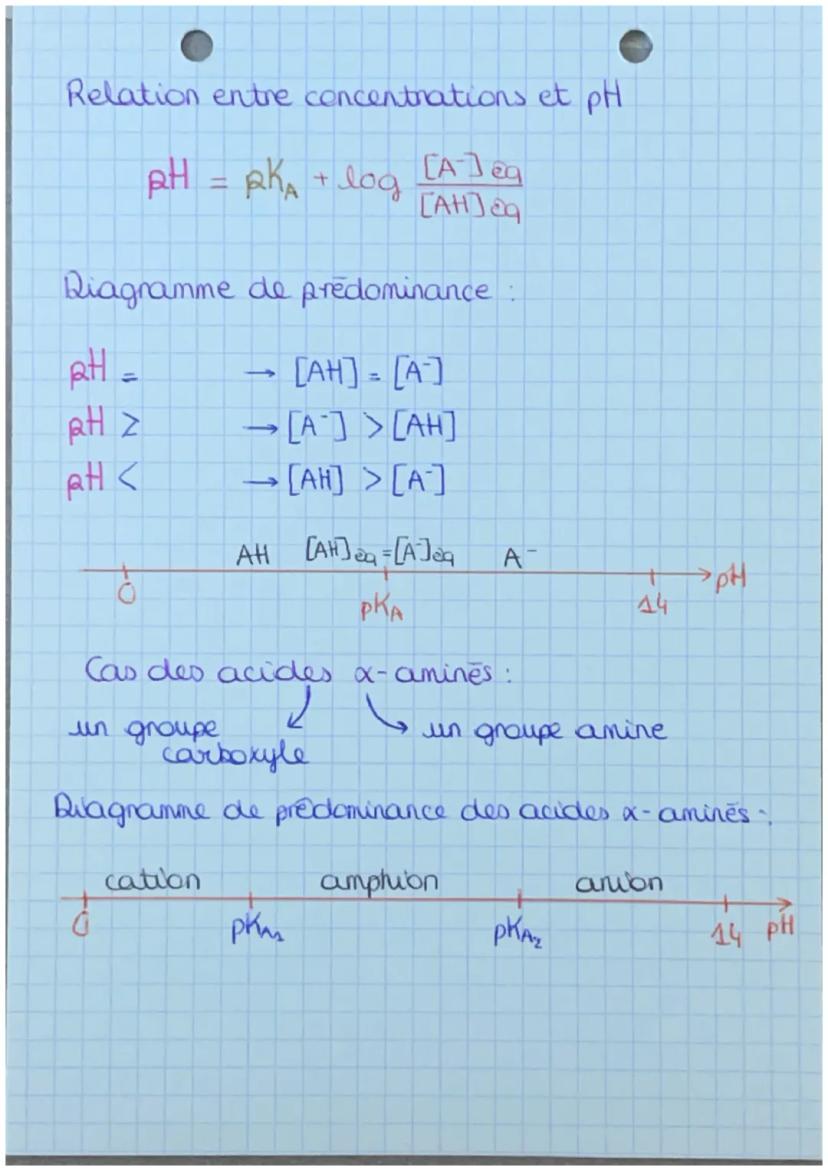 Relation entre concentrations et pH
pH = pKA + log [A-]éq / [AH]éq
Diagramme de prédominance :
pH = → [AH] = [A-]
pH ≥ → [A-] > [AH]
pH < → [AH] > [A-]
AH [AH]éq = [A-]éq A-
0 pKA 14 pH
Cas des acides α-aminés :
un groupe carboxyle un groupe amine
Diagramme de prédominance des acides α-aminés :
cation amphion anion
0 pKA1 pKA2 14 pH